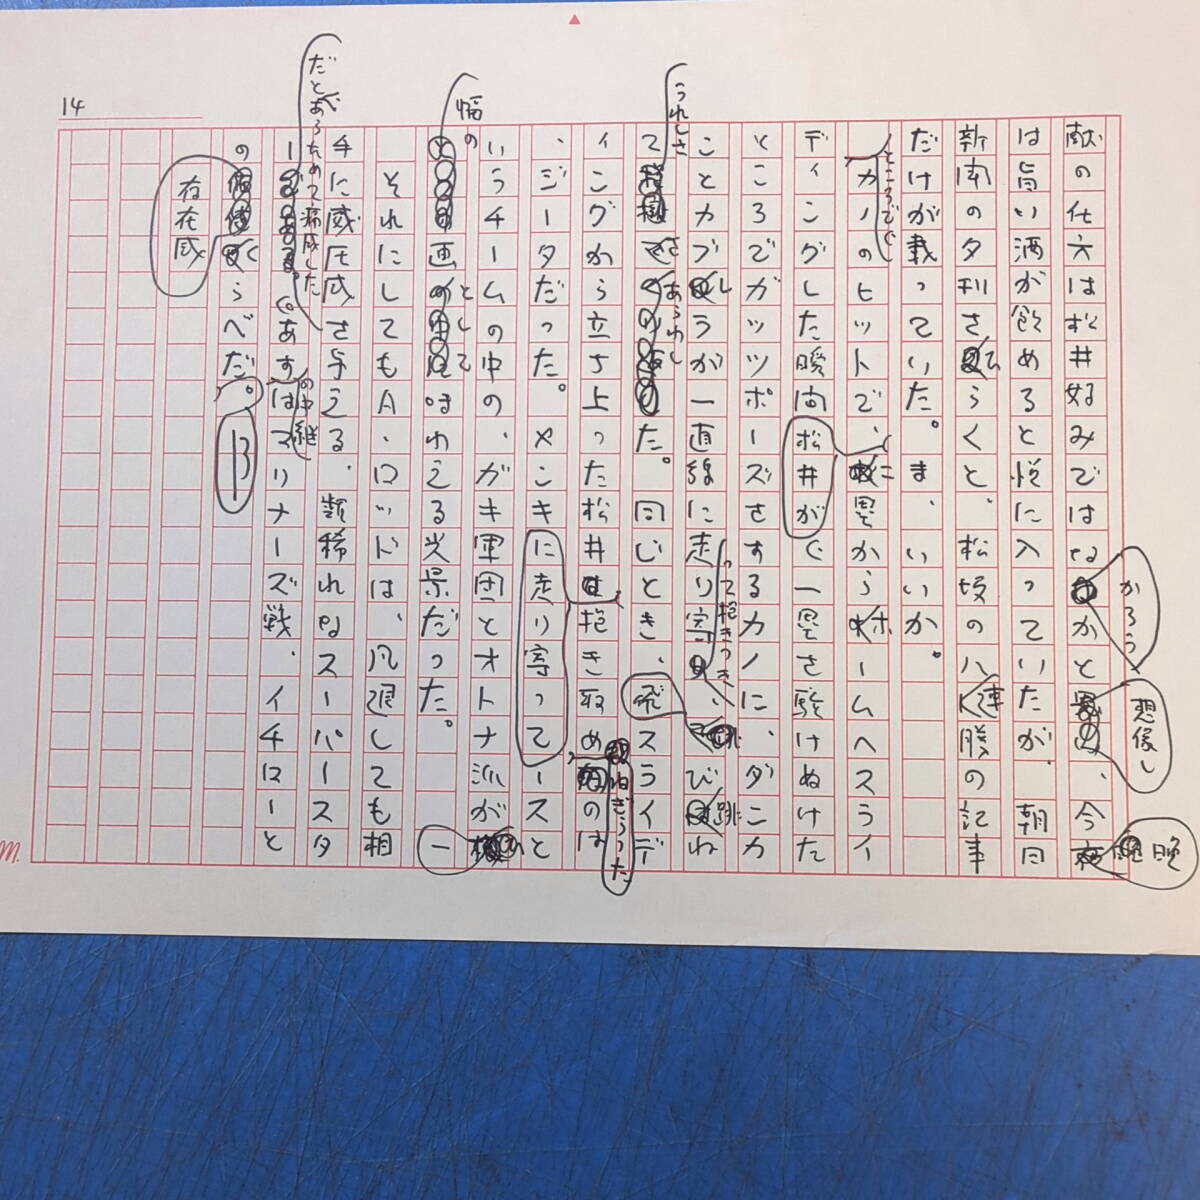 14
献の仕方は松井好みではなかろうかと想像し、今晩
は旨い酒が飲めると悦に入っていたが、朝日
新聞の夕刊をひらくと、松坂の八連勝の記事
だけが載っていた。ま、いいか。
ところで、カノのヒットで、二塁からホームへスライ
ディングした瞬間松井が一塁を駆けぬけた
ところでガッツポーズをするカノに、ダニカ
ことカブレラが一直線に走り寄って抱きつき、跳び跳ね
てうれしさをあらわした。同じとき、スライデ
ィングから立ち上った松井に走り寄って抱き取め、ねぎらったのは
、ジータだった。ヤンキースと
いうチームの中の、ガキ軍団とオトナ派が
一幅の画としてはわえる光景だった。
それにしてもA・ロッドは、凡退しても相
手に威圧感を与える、類稀れなスーパースタ
ーだとあらためて痛感した。
あすの中継はマリナーズ戦、イチローと
の存在感くらべだ。